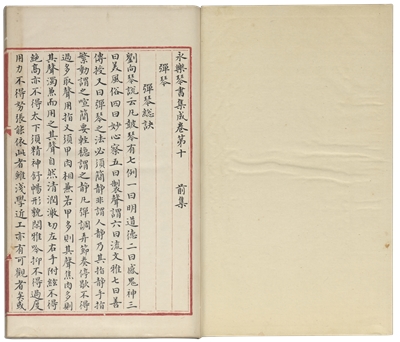 永樂琴書集成卷第十　前集
彈琴
彈琴總訣
劉向琴說云凡鼓琴有七例一曰明道德二曰感鬼神三
曰美風俗四曰妙心察五曰製聲調六曰流文雅七曰善
傳授又曰彈琴之法必須簡靜非謂人靜乃其指靜手指
繁動謂之喧簡要輕穩謂之靜凡彈調弄節奏停歇不得
過多取聲用指又須甲肉相兼若甲多則其聲焦肉多則
其聲濁兼而用之其聲自然清潤激切左右手附絃不得
絕高亦不得太下須精神舒暢形貌閑雅吟抑不得過度
用力不得努張能依此者雖淺學近工亦有可觀者矣或